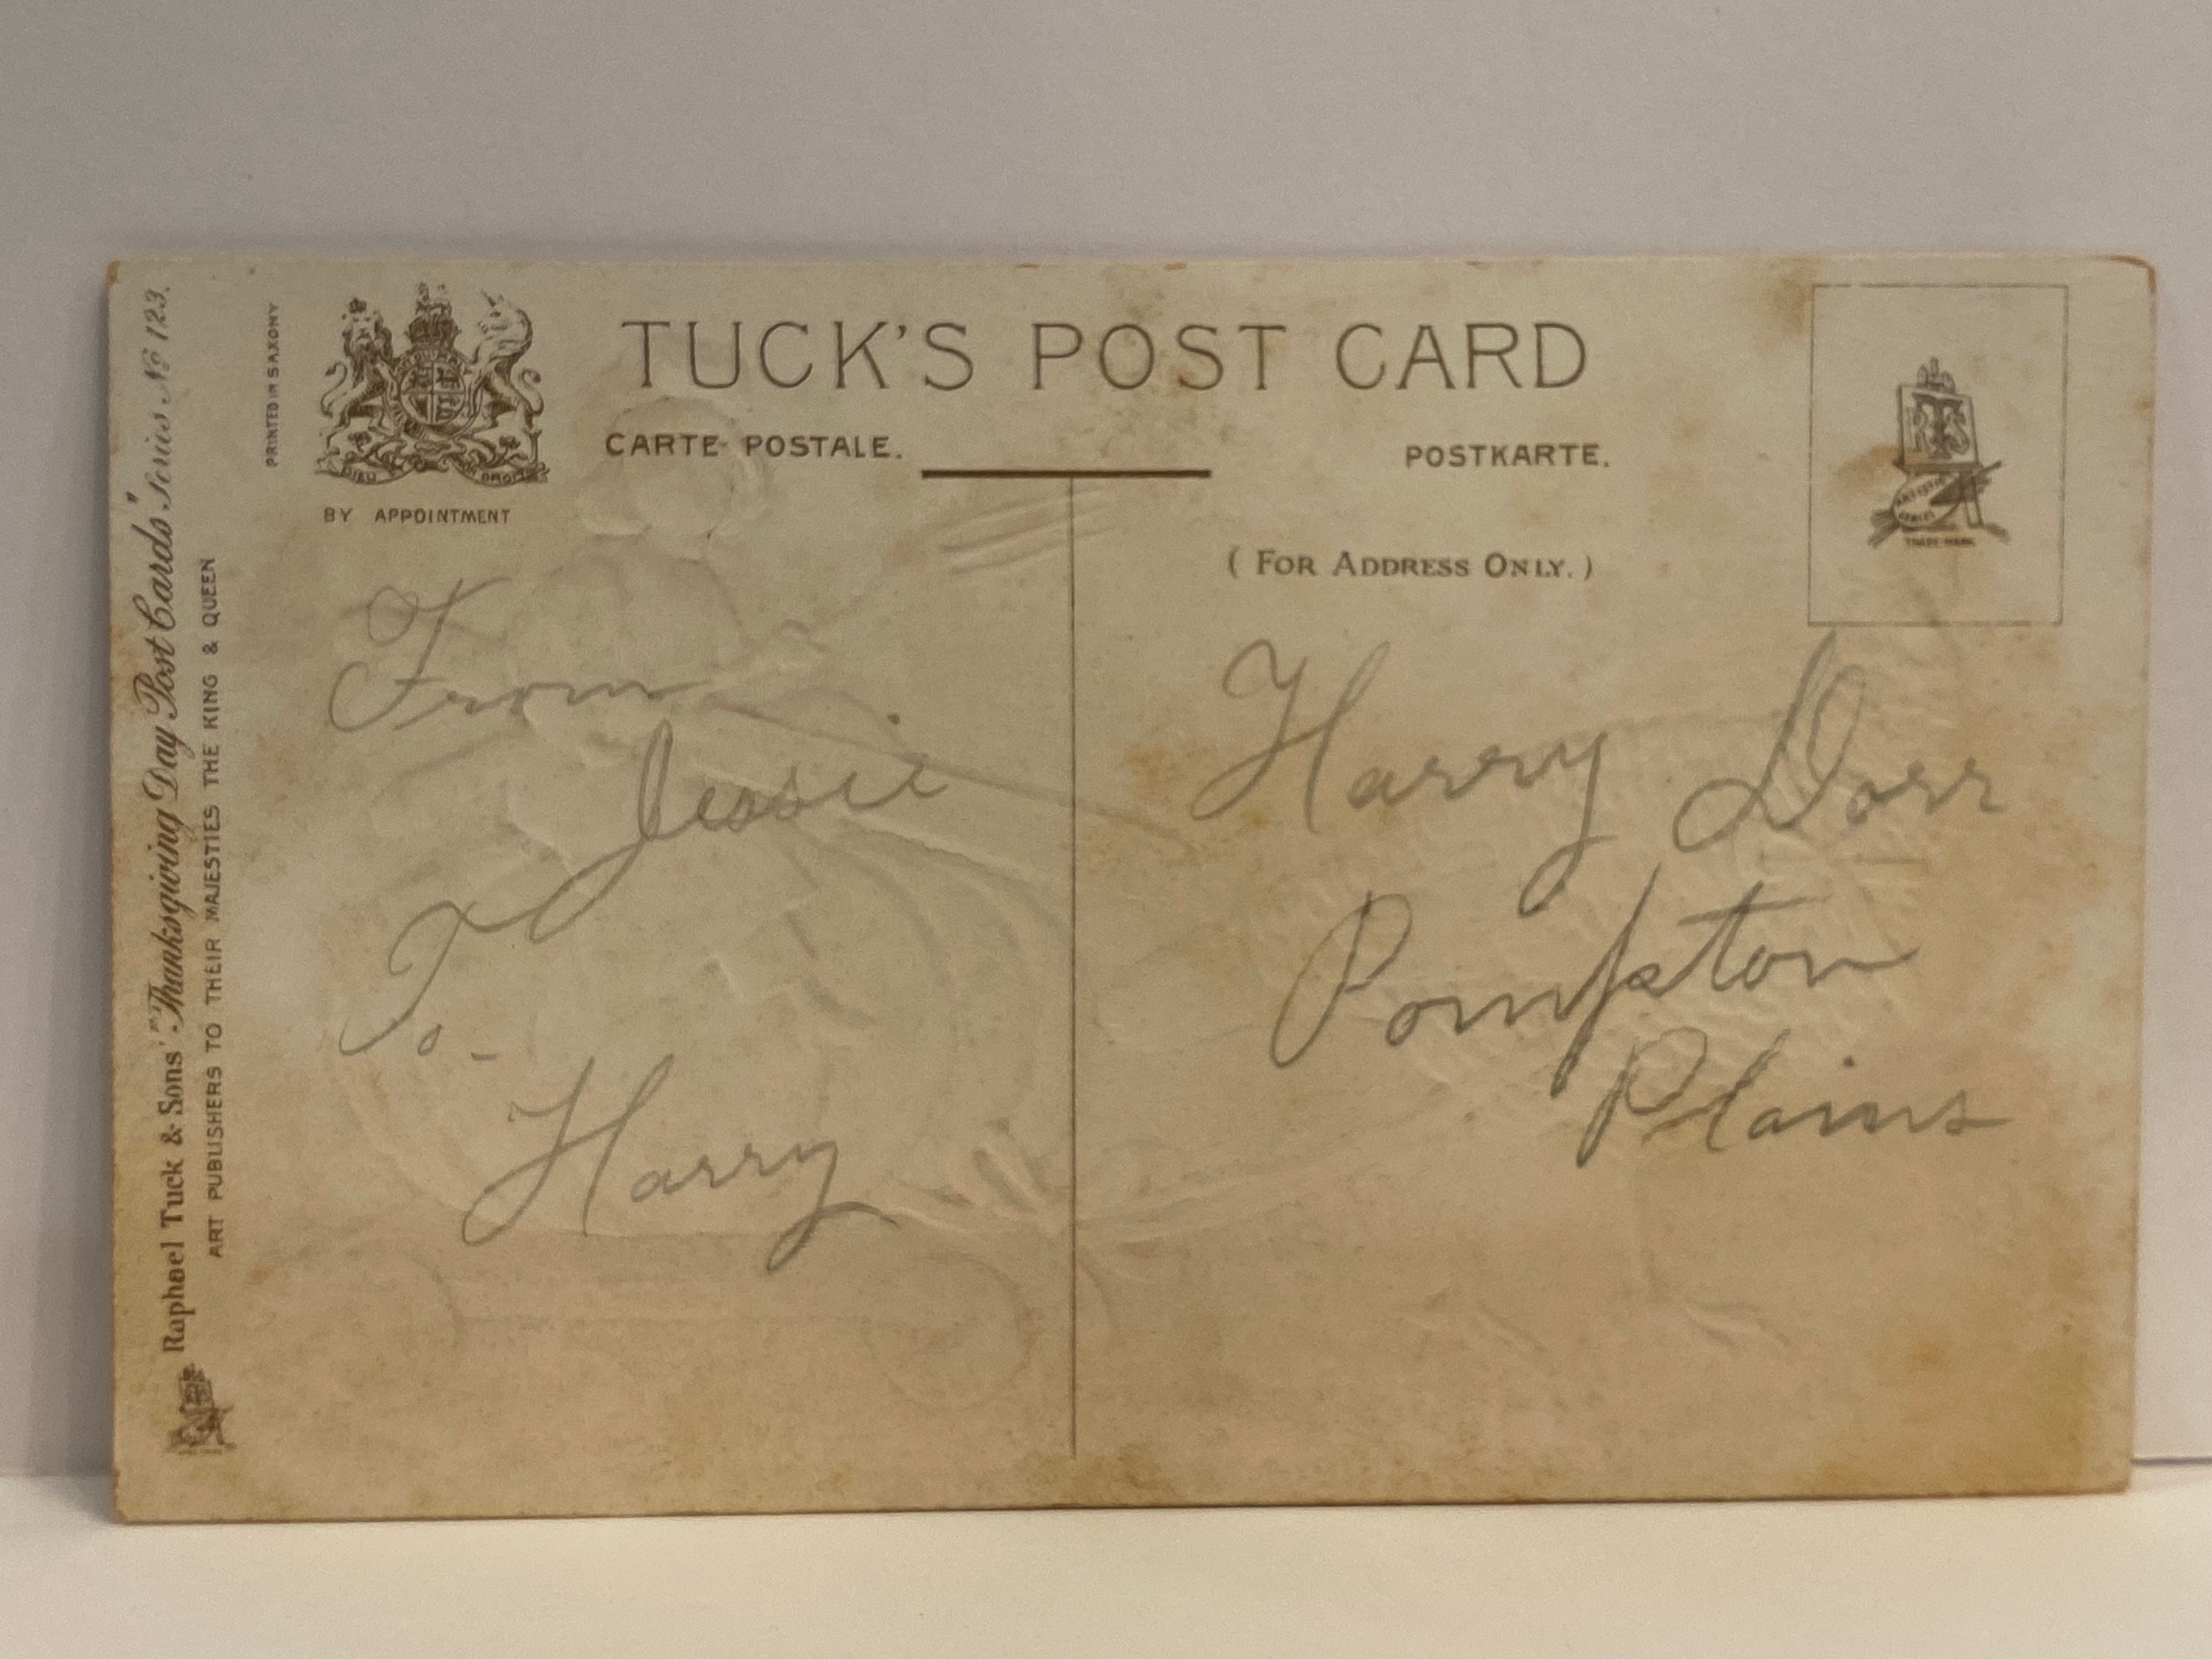 Raphael Tuck & Sons' "Thanksgiving Day Post Cards" Series No 123.
ART PUBLISHERS TO THEIR MAJESTIES THE KING & QUEEN
PRINTED IN SAXONY
DIEU DROIT
BY APPOINTMENT
TUCK'S POST CARD
CARTE POSTALE.
POSTKARTE.
(FOR ADDRESS ONLY.)
TRADE MARK
From
Jessie
To-
Harry
Harry Dorr
Pompton
Plains